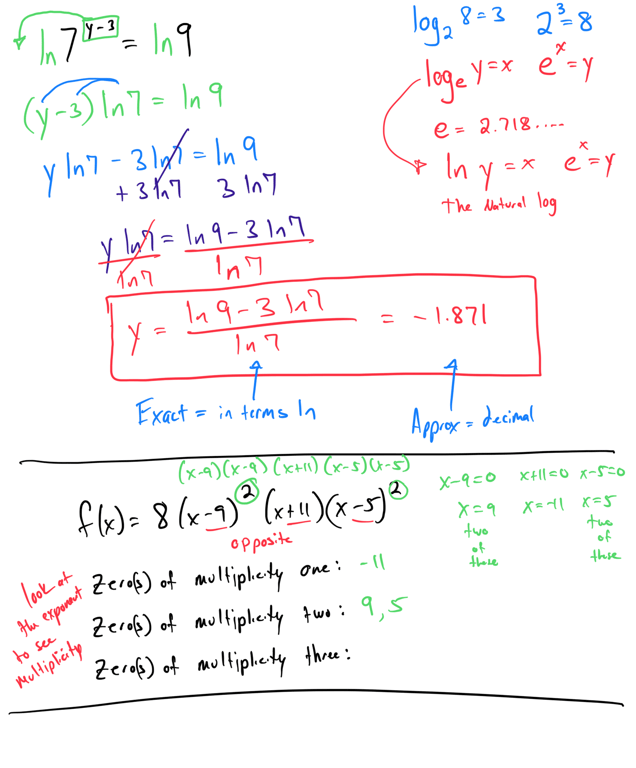 ln 7^(y-3) = ln 9
(y-3) ln 7 = ln 9
y ln7 - 3 ln7 = ln 9
+ 3 ln7 3 ln7
y ln7 = ln 9 - 3 ln7
ln7 ln7
y = (ln 9 - 3 ln7) / ln 7 = -1.871
Exact = in terms ln
Approx = decimal
log₂ 8 = 3 2³ = 8
logₑ y = x eˣ = y
e = 2.718....
ln y = x eˣ = y
The Natural log
(x-9)(x-9)(x+11)(x-5)(x-5)
f(x) = 8(x-9)²(x+11)(x-5)²
opposite
x-9=0 x+11=0 x-5=0
x=9 x=-11 x=5
two of these
two of these
look at
the exponent
to see
Multiplicity
Zero(s) of multiplicity one: -11
Zero(s) of multiplicity two: 9, 5
Zero(s) of multiplicity three: